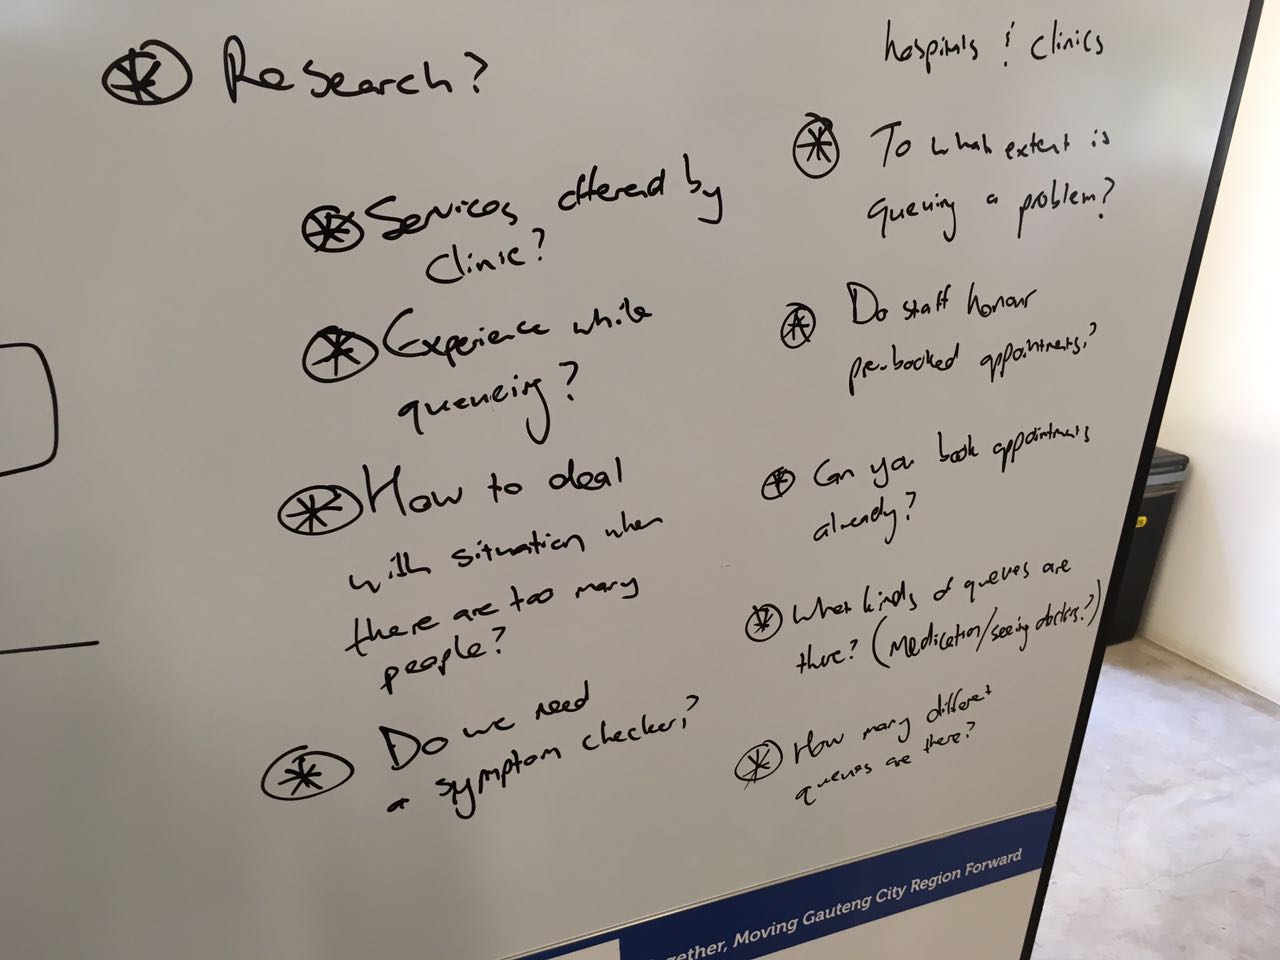 Research?
Services offered by
clinic?
Experience while
queueing?
How to deal
with situation when
there are too many
people?
Do we need
a symptom checker?
hospitals & clinics
To what extent is
queuing a problem?
Do staff honour
pre-booked appointments?
Can you book appointments
already?
What kinds of queues are
there? (Medication/seeing doctors?)
How many different
queues are there?
gether, Moving Gauteng City Region Forward